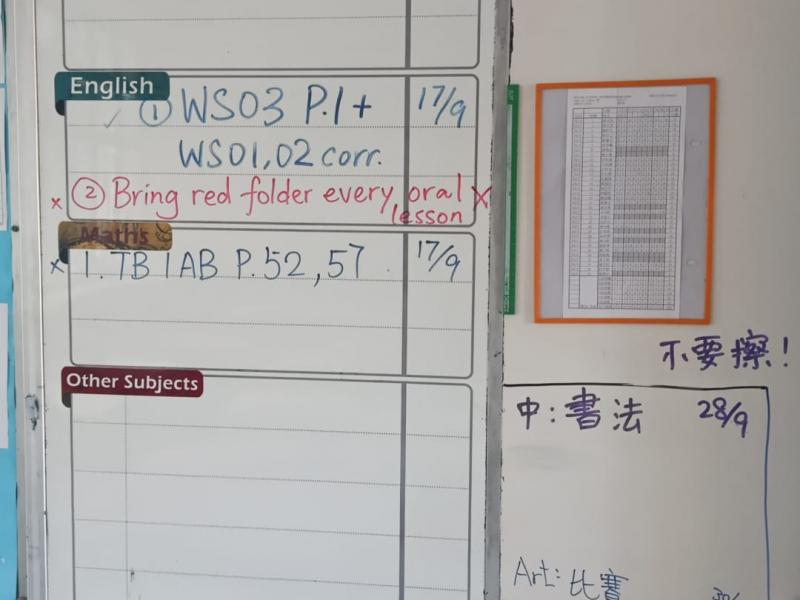 English
① WS03 P.1 + 17/9
WS01,02 corr.
② Bring red folder every oral
lesson
Maths
1. TB 1AB P.52,57 17/9
Other Subjects
不要擦！
中：書法 28/9
Art: 比賽